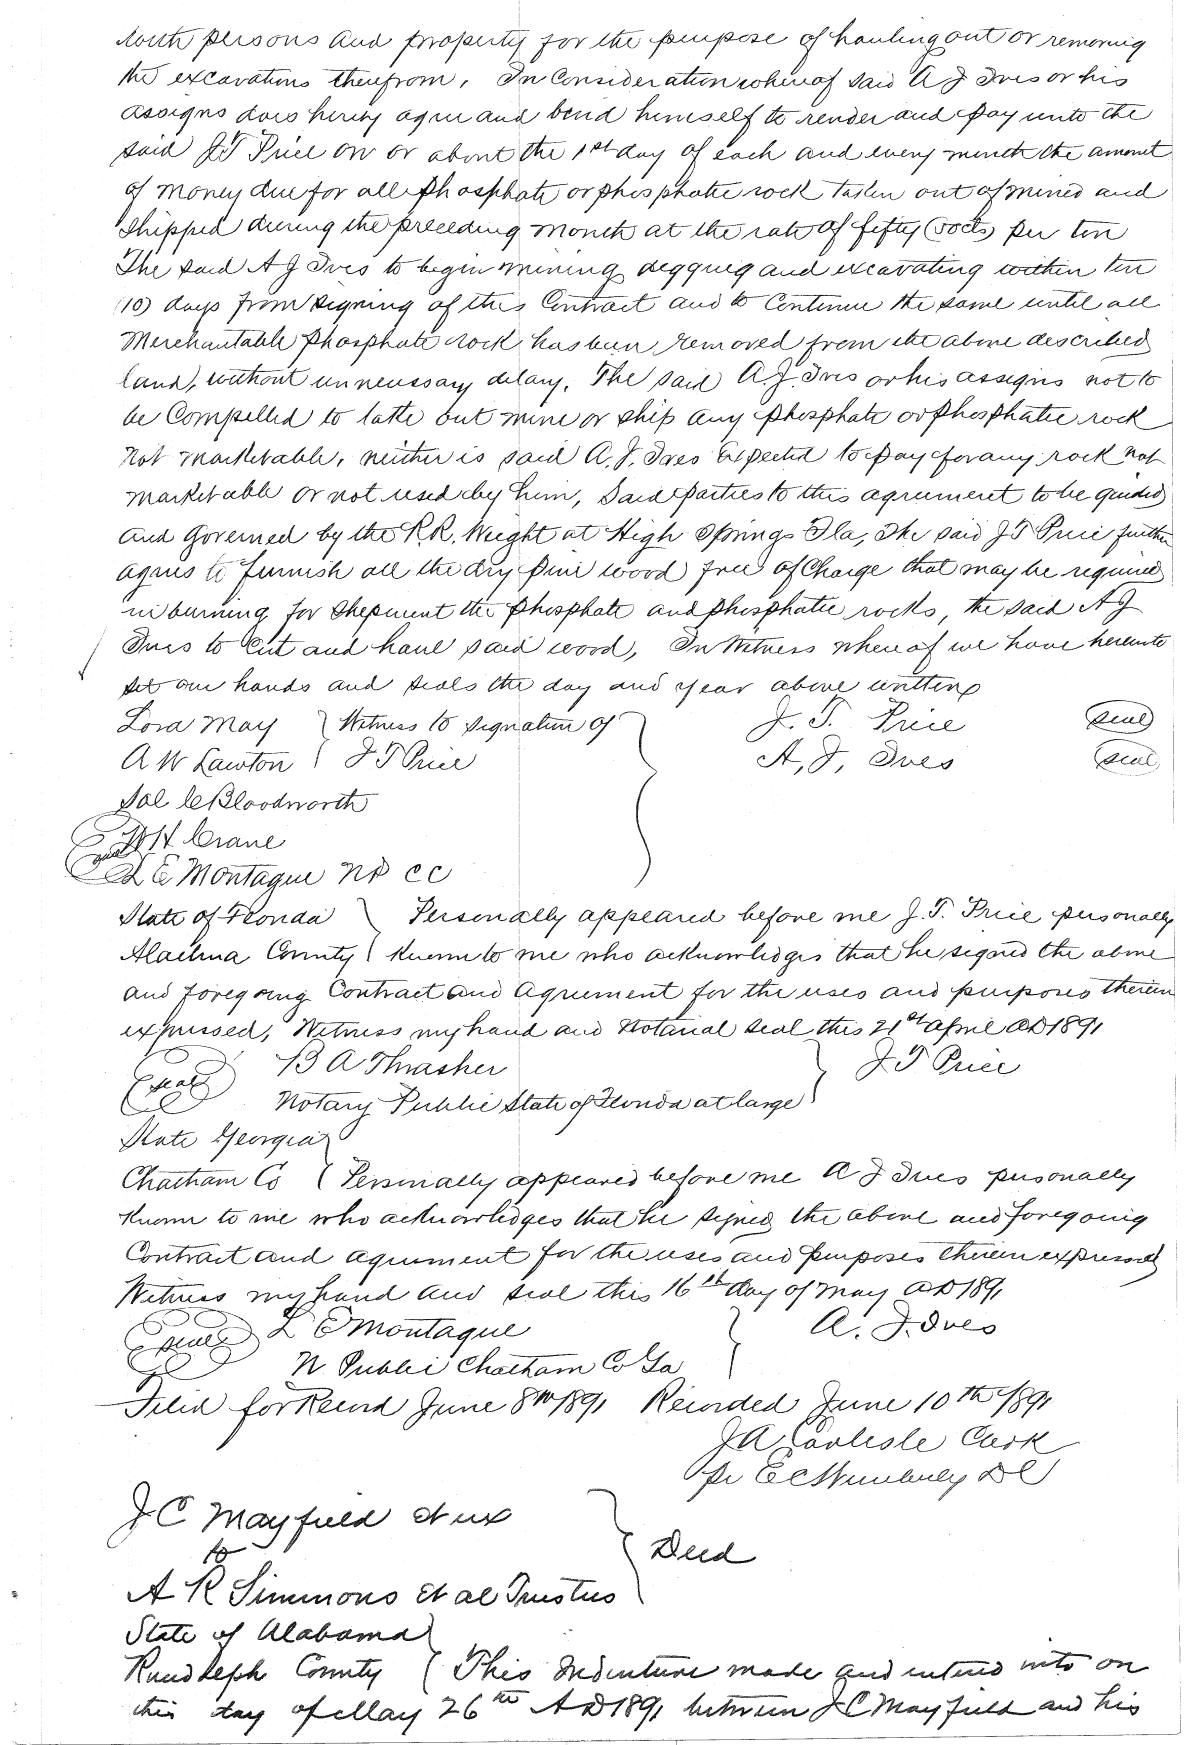 both persons and property for the purpose of hauling out or removing
the excavations therefrom. In Consideration whereof said A J Ives or his
assigns does hereby agree and bind himself to render and pay unto the
said J T Price on or about the 1st day of each and every month the amount
of money due for all Phosphate or phosphatic rock taken out of mined and
shipped during the preceeding month at the rate of fifty (50cts) per ton
The said A J Ives to begin mining digging and excavating within ten
(10) days from signing of this Contract and to Continue the same until all
Merchantable phosphate rock has been removed from the above described
land, without unnecessary delay. The said A. J. Ives or his assigns not to
be Compelled to take out mine or ship any phosphate or phosphatic rock
not marketable, neither is said A. J. Ives Expected to pay for any rock not
marketable or not used by him, Said parties to this agreement to be guided
and governed by the R.R. Weight at High Springs Fla, The said J T Price further
agrees to furnish all the dry pine wood free of Charge that may be required
in burning for shipment the phosphate and phosphatic rocks, the said A J
Ives to Cut and haul said wood, In Witness whereof we have hereunto
set our hands and seals the day and year above written
Lora May } Witness to signature of } J. T. Price (seal)
A W Lawton } J T Price A, J, Ives (seal)
Sol C Bloodworth
W H Crane
(seal) L E Montague N P C C
State of Florida } Personally appeared before me J. T. Price personally
Alachua County } known to me who acknowledges that he signed the above
and foregoing Contract and Agreement for the uses and purposes therein
expressed, Witness my hand and Notarial seal this 21st April AD 1891
(seal) B A Thrasher } J T Price
Notary Public State of Florida at large }
State Georgia }
Chatham Co } Personally appeared before me A J Ives personally
known to me who acknowledges that he signed the above and foregoing
Contract and agreement for the uses and purposes therein expressed
Witness my hand and seal this 16th day of May AD 1891
(seal) L E Montague } A. J. Ives
N Public Chatham Co Ga
Filed for Record June 8th 1891 Recorded June 10th 1891
J A Carlisle Clerk
pr E C Wimberly D C
J C Mayfield et ux
to } Deed
A R Simmons et al Trustees
State of Alabama }
Randolph County } This Indenture made and entered into on
this day of May 26th AD 1891 between J C Mayfield and his